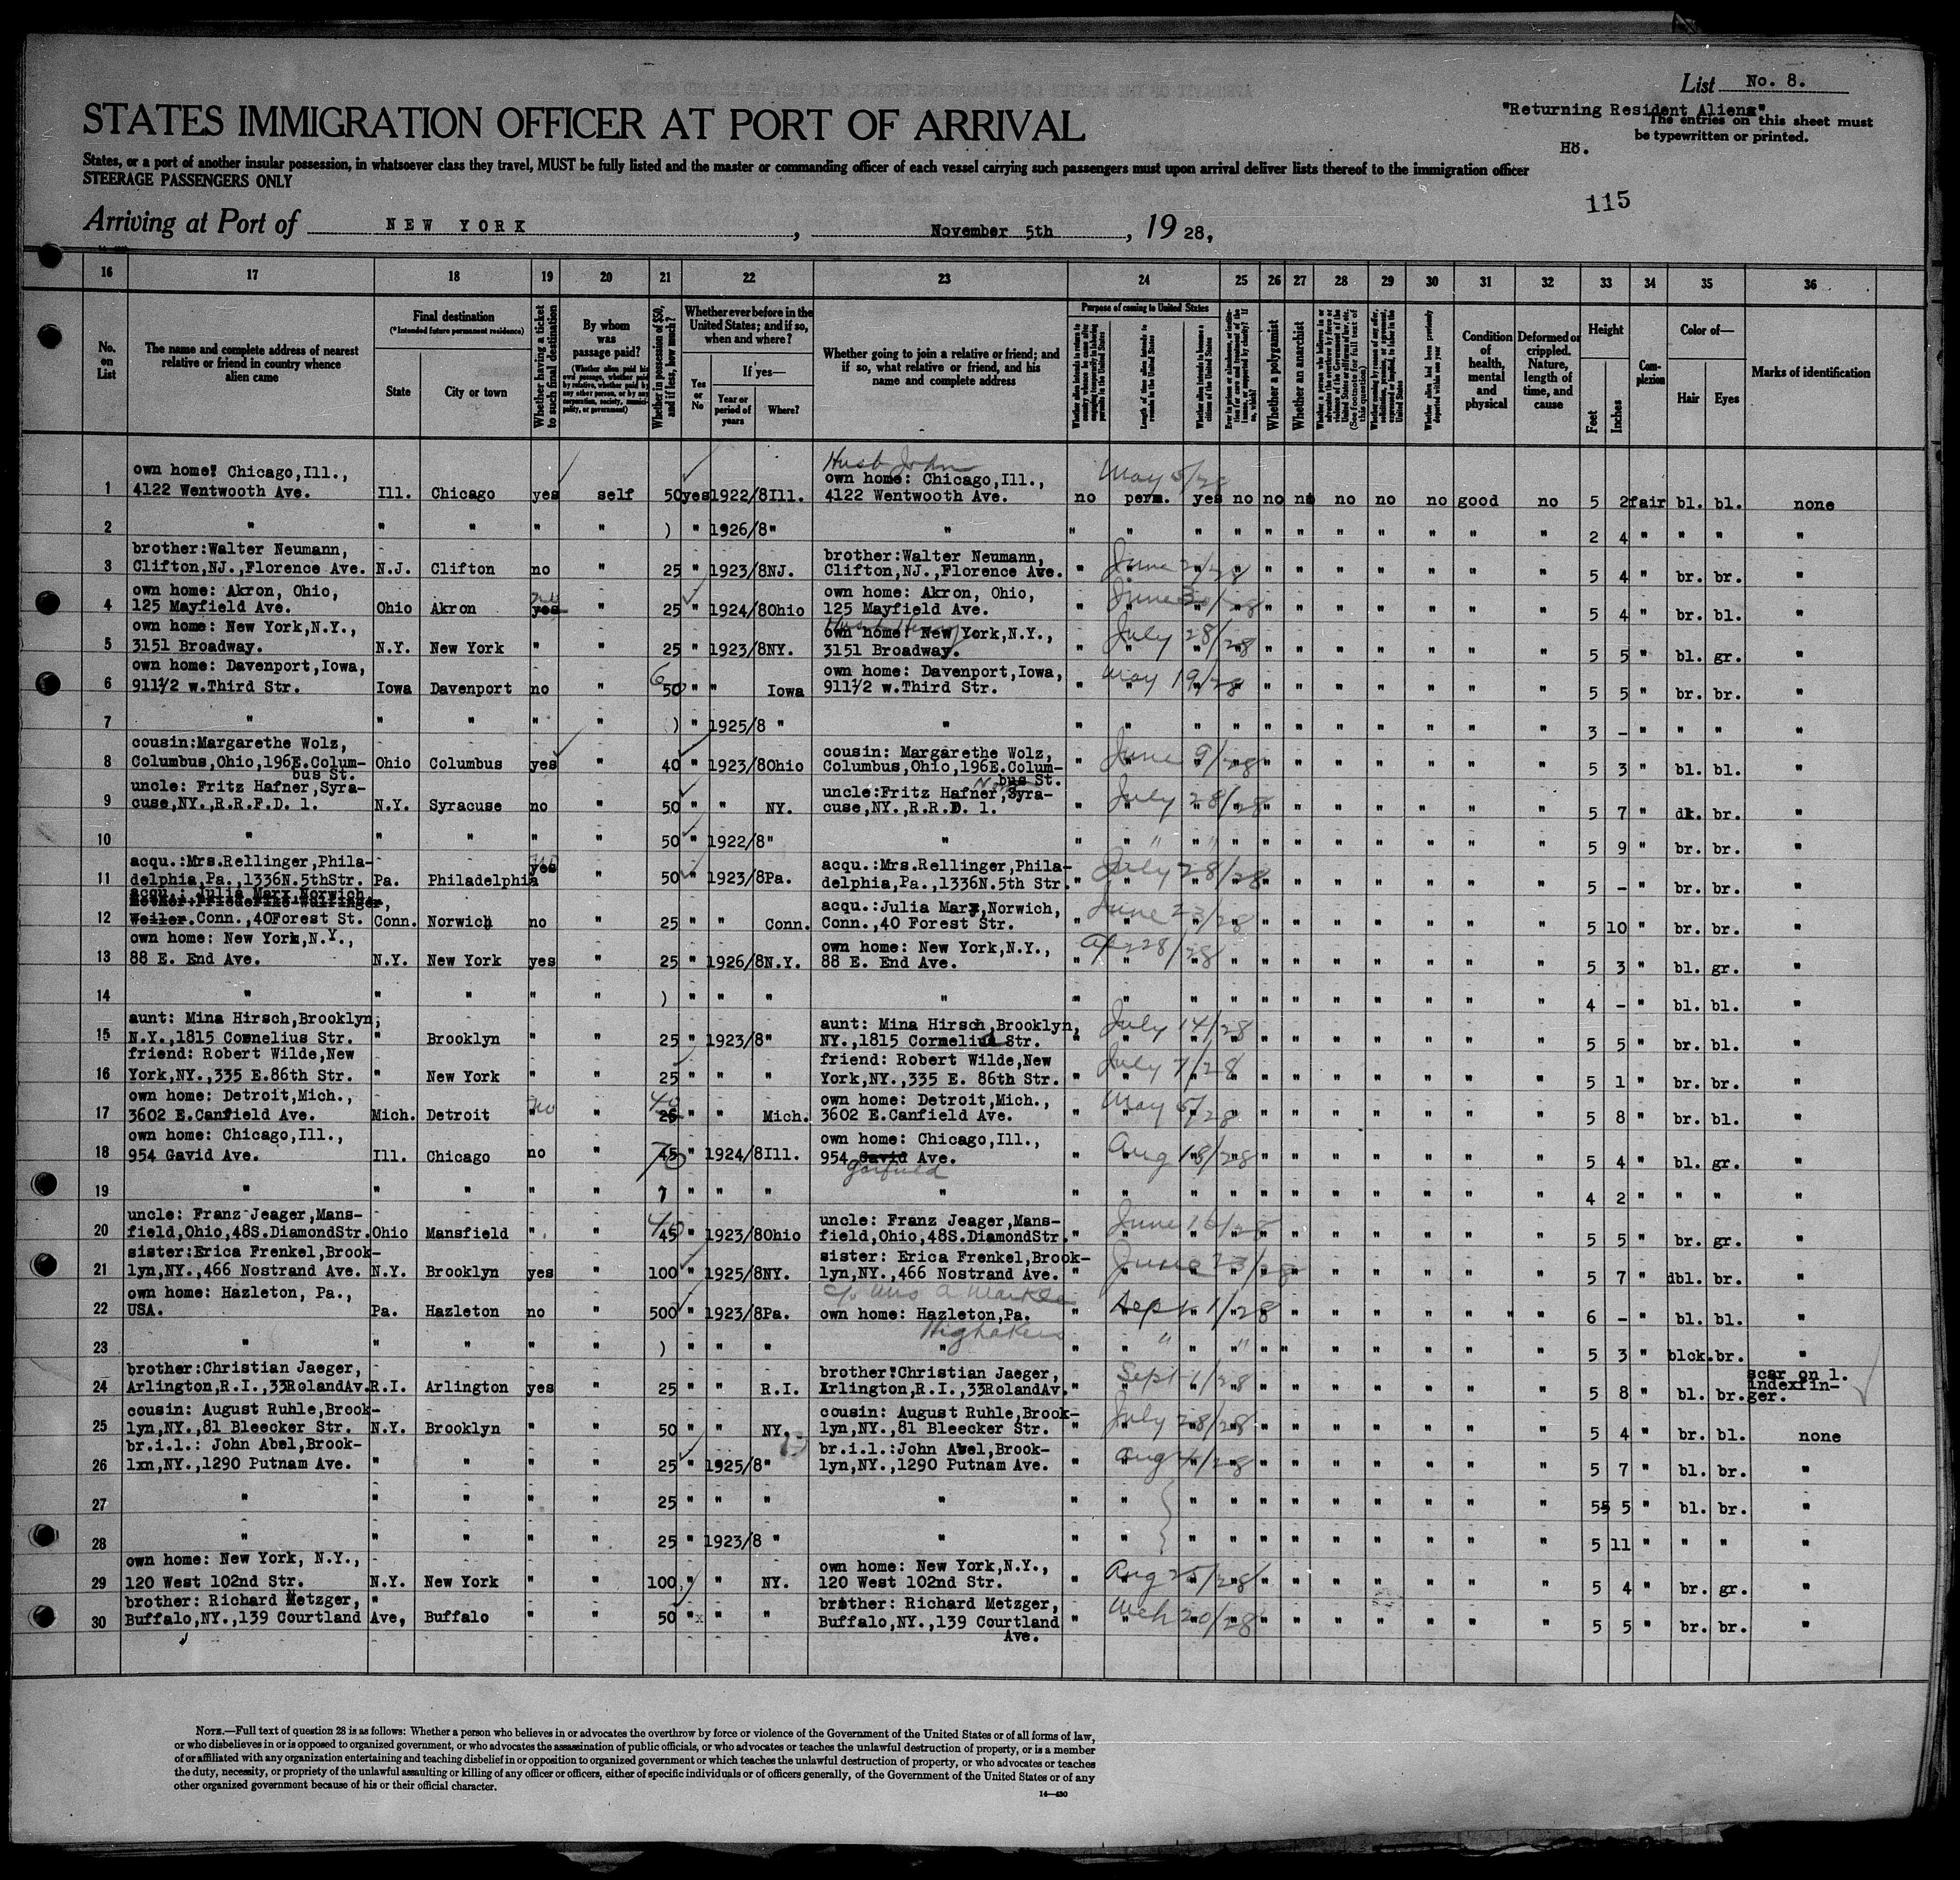 List No. 8.
"Returning Resident Aliens"
The entries on this sheet must
be typewritten or printed.
STATES IMMIGRATION OFFICER AT PORT OF ARRIVAL
H8.
States, or a port of another insular possession, in whatsoever class they travel, MUST be fully listed and the master or commanding officer of each vessel carrying such passengers must upon arrival deliver lists thereof to the immigration officer
STEERAGE PASSENGERS ONLY
115
Arriving at Port of NEW YORK, November 5th, 1928,
16 17 18 19 20 21 22 23 24 25 26 27 28 29 30 31 32 33 34 35 36
No. on List
The name and complete address of nearest relative or friend in country whence alien came
Final destination
(*Intended future permanent residence)
State
City or town
Whether having a ticket to such final destination
By whom was passage paid?
(Whether alien paid his own passage, whether paid by relative, whether paid by any other person, or by any corporation, society, municipality, or government)
Whether in possession of $50, and if less, how much?
Whether ever before in the United States; and if so, when and where?
Yes or No
If yes—
Year or period of years
Where?
Whether going to join a relative or friend; and if so, what relative or friend, and his name and complete address
Purpose of coming to United States
Length of time alien intends to remain in the United States
Whether alien intends to become a citizen of the United States
Whether a polygamist
Whether an anarchist
(See footnote for full text of this question)
Condition of health, mental and physical
Deformed or crippled. Nature, length of time, and cause
Height
Feet
Inches
Complexion
Color of—
Hair
Eyes
Marks of identification
Husb John May 5/28
1 own home: Chicago,Ill., 4122 Wentwooth Ave. Ill. Chicago yes self 50 yes 1922/8 Ill. own home: Chicago,Ill., 4122 Wentwooth Ave. no perm. yes no no no no no no good no 5 2 fair bl. bl. none
2 " " " " " ) " 1926/8 " " " " " " " " " " " " " 2 4 " " " "
3 brother:Walter Neumann, Clifton,NJ.,Florence Ave. N.J. Clifton no " 25 " 1923/8 NJ. brother:Walter Neumann, Clifton,NJ.,Florence Ave. " " " " " " " " " " " 5 4 " br. br. "
4 own home: Akron, Ohio, 125 Mayfield Ave. Ohio Akron yes no " 25 " 1924/8 Ohio own home: Akron, Ohio, 125 Mayfield Ave. " June 30/28 " " " " " " " " " 5 4 " br. bl. "
5 own home: New York,N.Y., 3151 Broadway. N.Y. New York " " 25 " 1923/8 NY. own home: New York,N.Y., 3151 Broadway. " July 28/28 " " " " " " " " " 5 5 " bl. gr. "
6 own home: Davenport,Iowa, 911½ w.Third Str. Iowa Davenport no " 50 " " Iowa own home: Davenport,Iowa, 911½ w.Third Str. " May 19/28 " " " " " " " " " 5 5 " br. br. "
7 " " " " " ) " 1925/8 " " " " " " " " " " " " " 3 - " " " "
8 cousin:Margarethe Wolz, Columbus,Ohio,196E.Columbus St. Ohio Columbus yes " 40 " 1923/8 Ohio cousin: Margarethe Wolz, Columbus,Ohio,196E.Columbus St. " June 9/28 " " " " " " " " " 5 3 " bl. bl. "
9 uncle: Fritz Hafner,Syracuse,NY.,R.R.F.D. 1. N.Y. Syracuse no " 50 " " NY. uncle:Fritz Hafner,Syracuse,NY.,R.R.D. 1. " July 28/28 " " " " " " " " " 5 7 " dk. br. "
10 " " " " " 50 " 1922/8 " " " " " " " " " " " " " 5 9 " br. br. "
11 acqu.:Mrs.Rellinger,Philadelphia,Pa.,1336N.5thStr. Pa. Philadelphia yes no " 50 " 1923/8 Pa. acqu.:Mrs.Rellinger,Philadelphia,Pa.,1336N.5th Str. " July 28/28 " " " " " " " " " 5 - " br. br. "
12 acqu.: Julia Marx,Norwich, Conn.,40Forest St. Conn. Norwich no " 25 " " Conn. acqu.:Julia Marx,Norwich, Conn.,40 Forest Str. " June 23/28 " " " " " " " " " 5 10 " br. br. "
13 own home: New York,N.Y., 88 E. End Ave. N.Y. New York yes " 25 " 1926/8 N.Y. own home: New York,N.Y., 88 E. End Ave. " Apr 28/28 " " " " " " " " " 5 3 " bl. gr. "
14 " " " " " ) " " " " " " " " " " " " " " " 4 - " bl. bl. "
15 aunt: Mina Hirsch,Brooklyn, N.Y.,1815 Cornelius Str. " Brooklyn " " 25 " 1923/8 " aunt: Mina Hirsch,Brooklyn, NY.,1815 Cornelius Str. " July 14/28 " " " " " " " " " 5 5 " br. bl. "
16 friend: Robert Wilde,New York,NY.,335 E.86th Str. " New York " " 25 " " " friend: Robert Wilde,New York,NY.,335 E. 86th Str. " July 7/28 " " " " " " " " " 5 1 " br. br. "
17 own home: Detroit,Mich., 3602 E.Canfield Ave. Mich. Detroit no " 25 40 " " Mich. own home: Detroit,Mich., 3602 E.Canfield Ave. " May 5/28 " " " " " " " " " 5 8 " br. bl. "
18 own home: Chicago,Ill., 954 Gavid Ave. Ill. Chicago no " 45 70 " 1924/8 Ill. own home: Chicago,Ill., 954 Gavid Ave. Garfield " Aug 18/28 " " " " " " " " " 5 4 " bl. gr. "
19 " " " " " ) " " " " " " " " " " " " " " " 4 2 " " " "
20 uncle: Franz Jeager,Mansfield,Ohio,48S.DiamondStr. Ohio Mansfield " " 45 40 " 1923/8 Ohio uncle: Franz Jeager,Mansfield,Ohio,48S.DiamondStr. " June 16/28 " " " " " " " " " 5 5 " br. gr. "
21 sister:Erica Frenkel,Brooklyn,NY.,466 Nostrand Ave. N.Y. Brooklyn yes " 100 " 1925/8 NY. sister: Erica Frenkel,Brooklyn,NY.,466 Nostrand Ave. " June 23/28 " " " " " " " " " 5 7 " dbl. br. "
22 own home: Hazleton, Pa., USA. Pa. Hazleton no " 500 " 1923/8 Pa. c/o Mrs A Markle own home: Hazleton,Pa. " Sept 1/28 " " " " " " " " " 6 - " bl. bl. "
23 " " " " " ) " " " " " " " " " " " " " " " 5 3 " blck. br. "
24 brother:Christian Jaeger, Arlington,R.I.,33RolandAv. R.I. Arlington yes " 25 " " R.I. brother:Christian Jaeger, Arlington,R.I.,33RolandAv. " Sept 1/28 " " " " " " " " " 5 8 " bl. br. scar on l. indexfinger.
25 cousin: August Ruhle,Brooklyn,NY.,81 Bleecker Str. N.Y. Brooklyn " " 50 " " NY. cousin: August Ruhle,Brooklyn,NY.,81 Bleecker Str. " July 28/28 " " " " " " " " " 5 4 " br. bl. none
26 br.i.l.: John Abel,Brooklxn,NY.,1290 Putnam Ave. " " " " 25 " 1925/8 " br.i.l.:John Abel,Brooklyn,NY.,1290 Putnam Ave. " Aug 4/28 " " " " " " " " " 5 7 " bl. br. "
27 " " " " " 25 " " " " " " " " " " " " " " " 5 5 " bl. br. "
28 " " " " " 25 " 1923/8 " " " " " " " " " " " " " 5 11 " " " "
29 own home: New York, N.Y., 120 West 102nd Str. N.Y. New York " " 100 " " NY. own home: New York,N.Y., 120 West 102nd Str. " Aug 25/28 " " " " " " " " " 5 4 " br. gr. "
30 brother: Richard Metzger, Buffalo,NY.,139 Courtland Ave, " Buffalo " " 50 " " " brother: Richard Metzger, Buffalo,NY.,139 Courtland Ave. " Mch 20/28 " " " " " " " " " 5 5 " br. br. "
NOTE.—Full text of question 28 is as follows: Whether a person who believes in or advocates the overthrow by force or violence of the Government of the United States or of all forms of law,
or who disbelieves in or is opposed to organized government, or who advocates the assassination of public officials, or who advocates or teaches the unlawful destruction of property, or is a member
of or affiliated with any organization entertaining and teaching disbelief in or opposition to organized government or which teaches the unlawful destruction of property, or who advocates or teaches
the duty, necessity, or propriety of the unlawful assaulting or killing of any officer or officers, either of specific individuals or of officers generally, of the Government of the United States or of any
other organized government because of his or their official character.
14—430